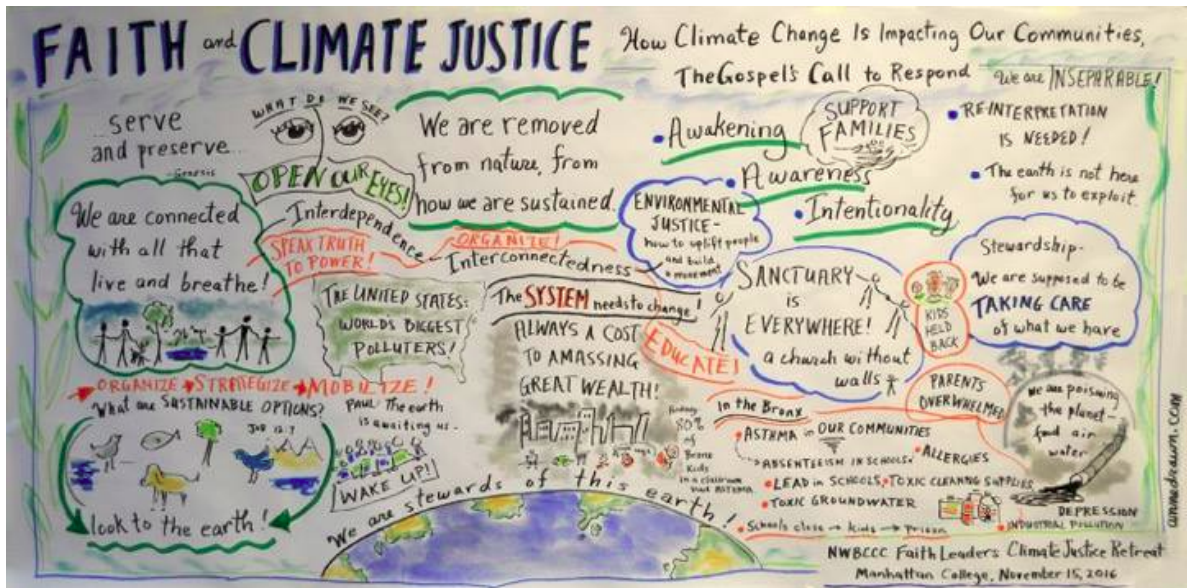 FAITH and CLIMATE JUSTICE
How Climate Change Is Impacting Our Communities,
The Gospel's Call to Respond
...serve
and preserve...
-Genesis
WHAT DO WE SEE?
OPEN OUR EYES!
We are removed
from nature, from
how we are sustained.
Awakening
Awareness
Intentionality
SUPPORT
FAMILIES
We are INSEPARABLE!
RE-INTERPRETATION
IS NEEDED!
The earth is not here
for us to exploit.
We are connected
with all that
live and breathe!
Interdependence
Interconnectedness
SPEAK TRUTH
TO POWER!
ORGANIZE!
ENVIRONMENTAL
JUSTICE-
how to uplift people
and build
a movement
Stewardship-
We are supposed to be
TAKING CARE
of what we have
THE UNITED STATES:
WORLD'S BIGGEST
POLLUTERS!
The SYSTEM needs to change!
ALWAYS A COST
TO AMASSING
GREAT WEALTH!
EDUCATE!
SANCTUARY
is
EVERYWHERE!
a church without
walls
KIDS
HELD
BACK
PARENTS
OVERWHELMED
We are poisoning
the planet-
food air
water
ORGANIZE STRATEGIZE MOBILIZE!
What are SUSTAINABLE OPTIONS?
JOB 12:7
look to the earth!
PAUL: The earth
is awaiting us.
WAKE UP!
80%
of
Bronx
Kids
in a classroom
have ASTHMA
In the Bronx
ASTHMA in OUR COMMUNITIES
ABSENTEEISM IN SCHOOLS
ALLERGIES
LEAD in SCHOOLS
TOXIC CLEANING SUPPLIES
TOXIC GROUNDWATER
DEPRESSION
INDUSTRIAL POLLUTION
Schools close → kids → prison
We are stewards of this earth!
NWBCCC Faith Leaders Climate Justice Retreat
Manhattan College, November 15, 2016